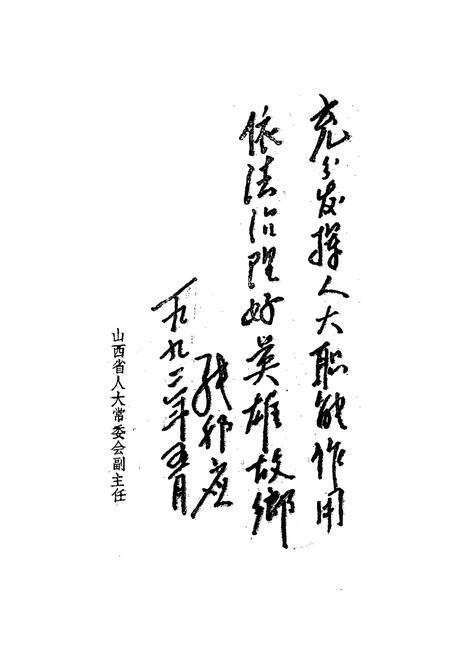 充分发挥人大职能作用
依法治理好英雄故鄉
张邦应
一九九二年五月
山西省人大常委会副主任